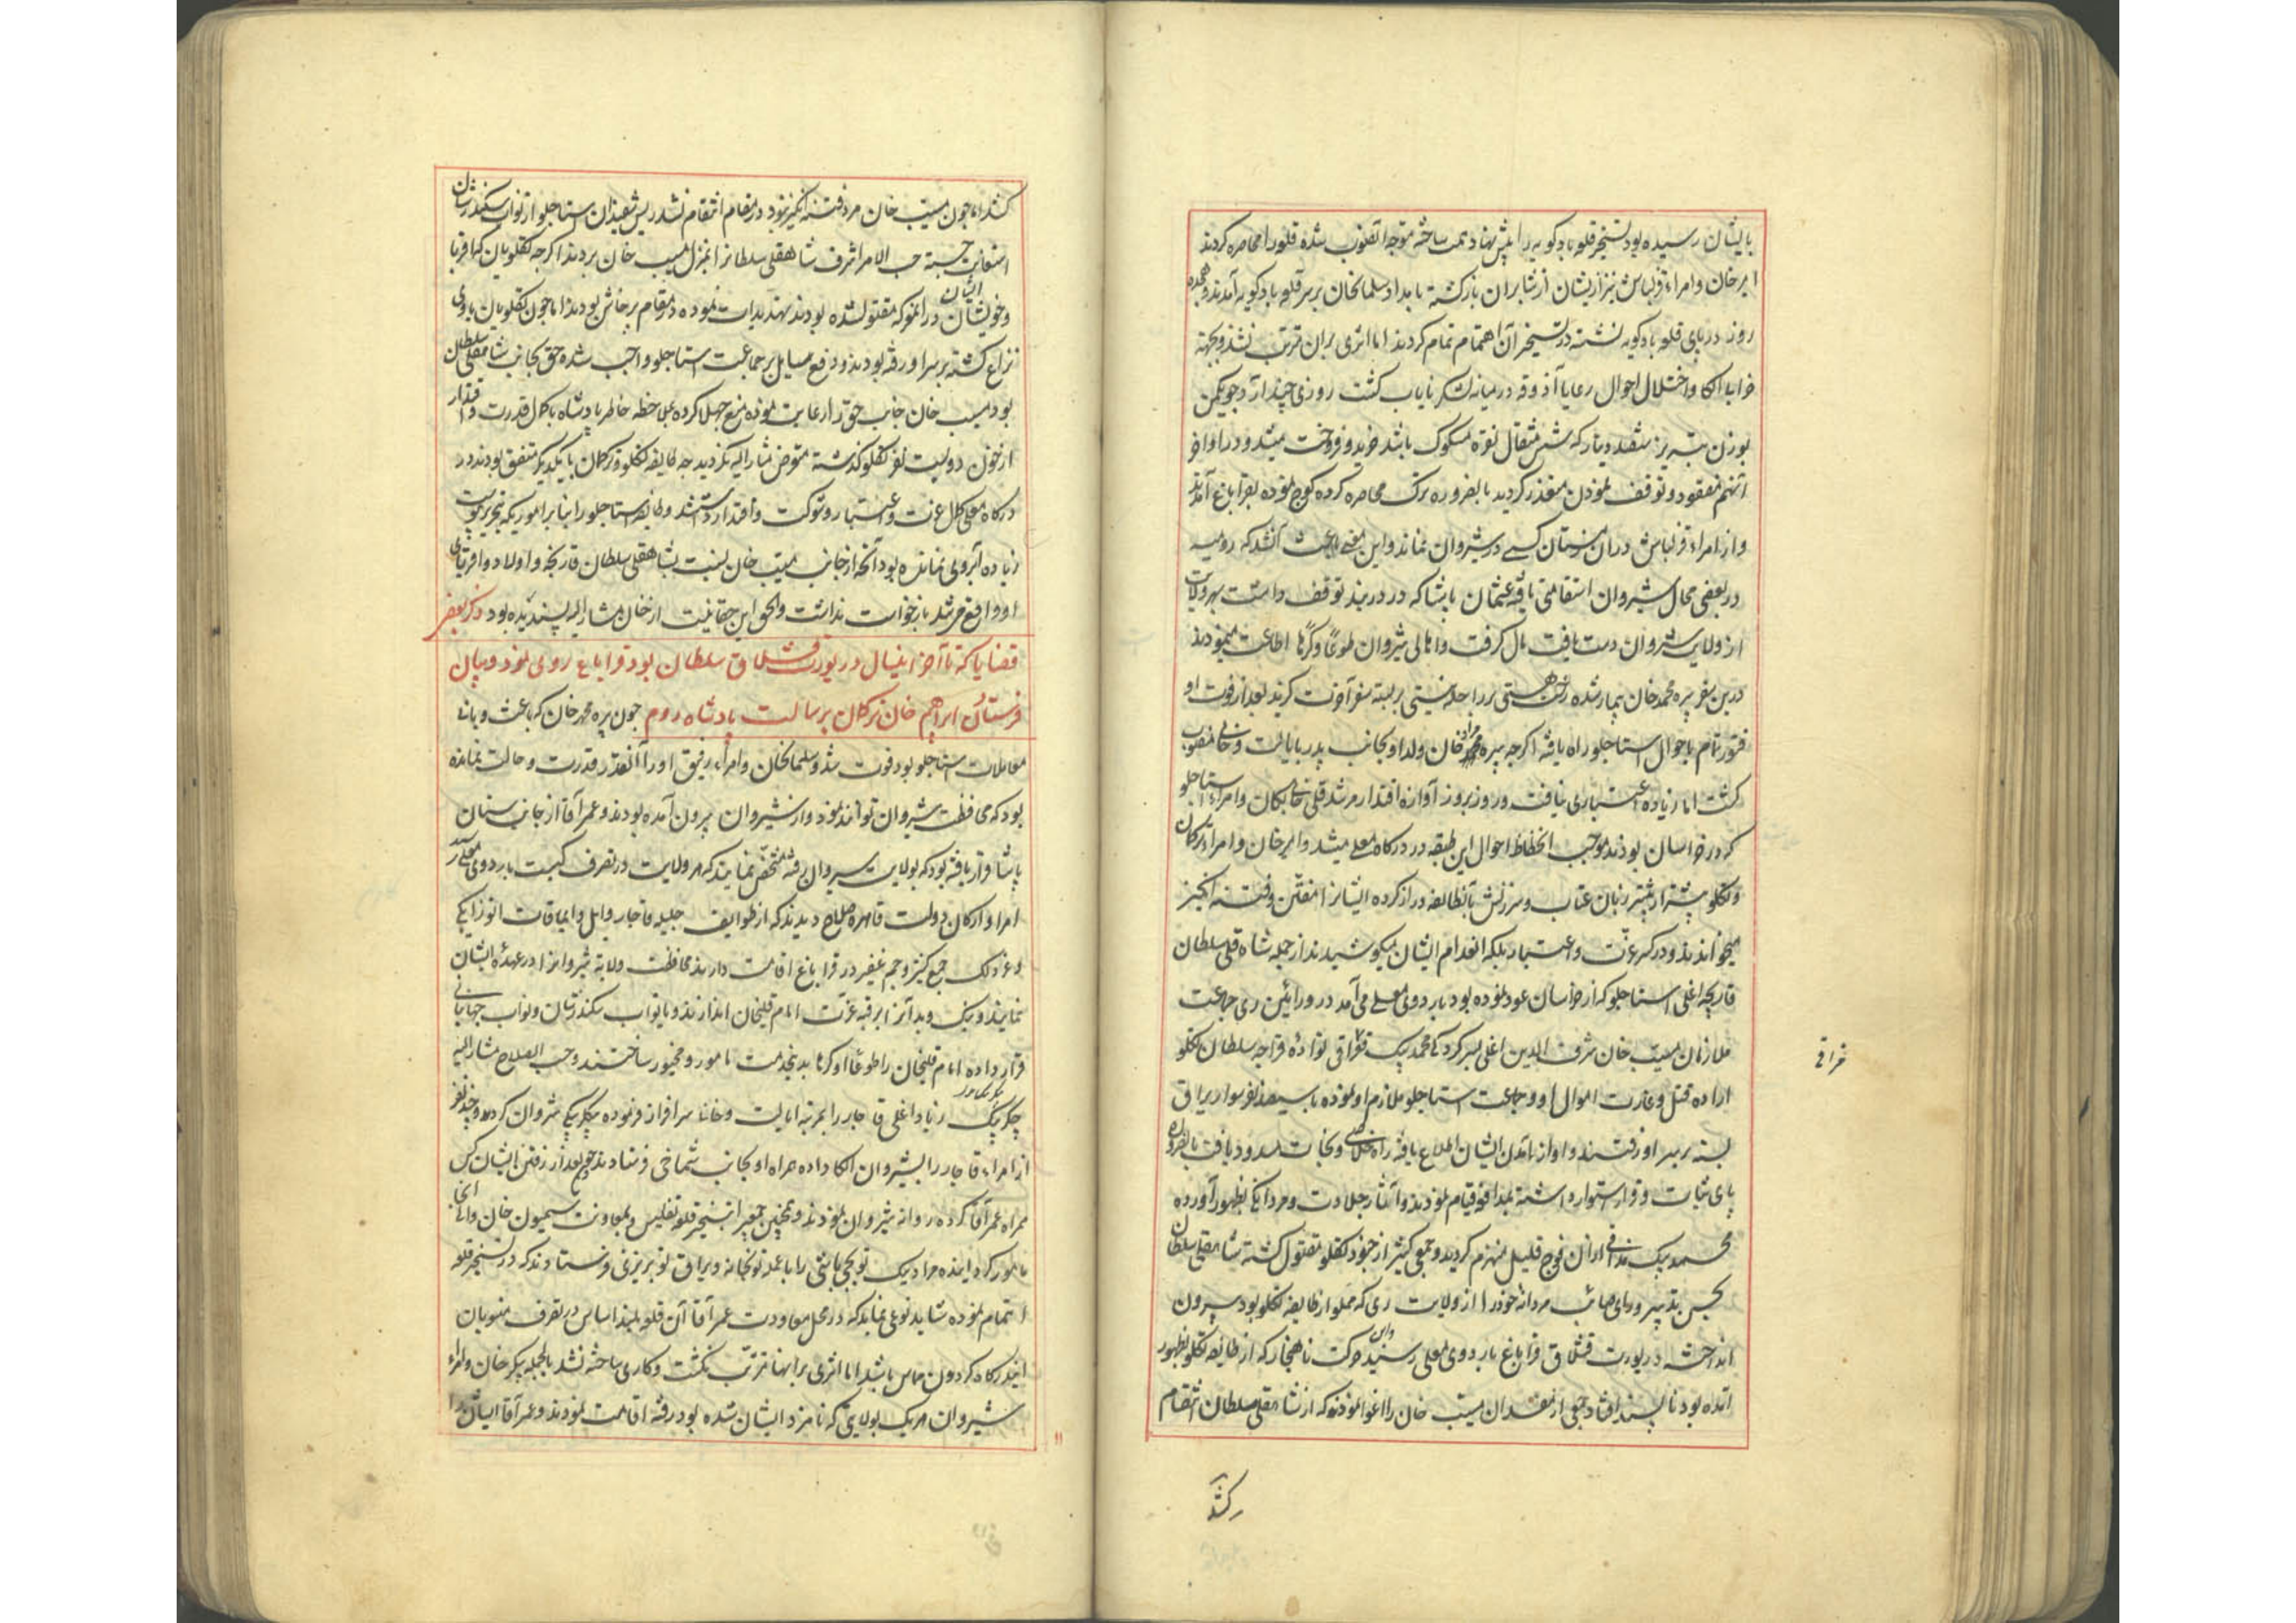 بایشان رسیده بود تسخیر قلعه بادکوبه را پیش نهاد همت ساخته متوجه آنصوب شده قلعه را محاصره کردند
امیر خان و امراء قزلباش نیز از یشان از شابران بازگشته بامداد سلمانخان بر سر قلعه بادکوبه آمدند هجده
روز در پای قلعه بادکوبه نشسته در تسخیر آن اهتمام تمام کردند اما اثری بران مترتب نشد و بجهته
خرابی الکا و اختلال احوال رعایا آذوقه در میانه لشکر نایاب کشت روزی چند آرد جو یکمن
بوزن تبریز بششصد دینار که شش مثقال نقره مسکوک باشد خرید و فروخت میشد و در اواخر
آنهم مفقود و توقف نمودن متعذر کردید بالضروره ترک محاصره کرده کوچ نموده بقراباغ آمدند
و از امراء قزلباش دران زمستان کسی در شیروان نماند و این معنی باعث آنشد که رومیه
در بعضی محال شیروان استقامتی یافته عثمان پاشا که در دربند توقف داشت بهر ولایت
از ولایت شیروان دست یافت مال کرفت و اهالی شیروان طوعا و کرها اطاعت مینمودند
درین سفر پیره محمد خان بیمار شده رخت هستی بر راحله نیستی بربسته سفر آخرت کزید بعد از فوت او
فتور تمام باحوال استاجلو راه یافته اکرچه پیره محمد خان ولد او بجانب پدر بایالت و خانی منصوب
کشت اما زیاده اعتباری نیافت و روز بروز آوازه اقتدار مرشد قلی خان و امراء استاجلو
که در خراسان بودند موجب انحطاط احوال این طبقه در درکاه معلی میشد و امیر خان و امراء ترکمان
و تکلو پیشتر از پیشتر زبان عتاب و سرزنش بآنطایفه دراز کرده ایشانرا مفتن و فتنه انکیز
میخواندند و در کسر عزت و اعتبار بلکه انعدام ایشان میکوشیدند از جمله شاه قلی سلطان
قارنجه اغلی استاجلو که از خراسان عود نموده بود باردوی معلی می آمد در ورامین ری جماعت
ملازمان مسیب خان شرف الدین اغلی بسرکردکی محمد بیک نواده قراجه سلطان تکلو
اراده قتل و غارت اموال او و جماعت استاجلو ملازم او نموده با سیصد نفر سوار یراق
بسته بر سر او رفتند و او از آمدن ایشان اطلاع یافته راه خلاصی و نجات مسدود یافت بالضروره
پای ثبات و قرار استوار داشته بمدافعه قیام نمودند و آثار جلادت و مردانکی بظهور آورده
محمد بیک ازان فوج قلیل منهزم کردید و جمعی کثیر از جنود تکلو مقتول کشته شاهقلی سلطان
بحسن تدبیر و رای صائب مردانه خود را از ولایت ری که مملو از طایفه تکلو بود بیرون
انداخته در یورت قشلاق قراباغ باردوی معلی رسید و این حرکت ناهنجار که از طایفه تکلو بظهور
آمده بود ناپسند افتاد جمعی از مفسدان مسیب خان را اغوا نمودند که از شاهقلی سلطان انتقام
کشد
کشد اما چون مسیب خان مرد فتنه انکیز نبود در مقام انتقام نشد ریش سفیدان استاجلو از نواب سکندر شان
استعانت جسته حسب الامر اشرف شاهقلی سلطانرا بمنزل مسیب خان بردند اکرچه تکلویان که اقربا
و خویشان ایشان دران معرکه مقتول شده بودند تهدیدات نموده در مقام پرخاش بودند اما چون تکلویان بادی
نزاع کشته بر سر او رفته بودند و دفع صایل بر جماعت استاجلو واجب شده حق بجانب شاهقلی سلطان
بود مسیب خان جانب حق را رعایت نموده منع جهلا کرده بملاحظه خاطر پادشاه با کمال قدرت و اقتدار
از خون دویست نفر تکلو کذشته متعرض مشارالیه نکردید چه طایفه تکلو و ترکمان با یکدیکر متفق بودند در
درکاه معلی کمال عزت و اعتبار و شوکت و اقتدار داشتند و طایفه استاجلو را بنابر اموریکه تحریر پیوست
زیاده آبرویی نمانده بود آنچه از جانب مسیب خان نسبت بشاهقلی سلطان قارنجه و اولاد و اقربای
او واقع می شد بازخواست نداشت والحق این حقانیت از خان مشارالیه پسندیده بود ذکر بعض
قضایا که تا آخر اینسال در یورت قشلاق سلطان بود قراباغ روی نمود و بیان
فرستادن ابراهیم خان ترکمان برسالت پادشاه روم چون پیره محمد خان که باعث و بانی
معاملات استاجلو بود فوت شد و سلمانخان و امراء رفیق او را آنقدر قدرت و حالت نمانده
بود که محافظت شیروان توانند نمود و از شیروان بیرون آمده بودند و عمر آقا از جانب سنان
پاشا قرار یافته بود که بولایت شیروان رفته مشخص نماید که هر ولایت در تصرف کیست باردوی معلی رسید
امرا و ارکان دولت قاهره صلاح دیدند که از طوایف جلیله قاجار و ایل و ایماقات اتوزایکی
و غیر ذلک جمع کثیر و جم غفیر در قراباغ اقامت دارند محافظت ولایت شیروانرا در عهده ایشان
نمایند و نیک و بد آنرا برقبه عزت امام قلیخان اندازند و با نواب سکندر شان و نواب جهانبانی
قرار داده امام قلیخان را طوعا او کرها بدینخدمت مامور و مجبور ساختند و حسب الصلاح مشارالیه
پیکر بیک زیاد اغلی قاجار را بمرتبه ایالت و خانی سرافراز فرموده بیکلربیکی شیروان کردند و چند نفر
از امراء قاجار را بشیروان الکا داده همراه او بجانب شماخی فرستادند و بعد از رفتن ایشان کس
همراه عمر آقا کرده روانه شیروان نمودند و همچنین جمعی را بتسخیر قلعه تفلیس و بمعاونت سیمیون خان والی آنجا
مامور کردانیده مراد بیک توپچی باشی را با عمله توپخانه و یراق توپ ریزی فرستادند که در تسخیر قلعه
اهتمام نموده شاید نوعی نماید که در محل معاودت عمر آقا آن قلعه بلند اساس در تصرف منسوبان
این درکاه کردون مماس باشد اما اثری برانها مترتب نکشت و کاری ساخته نشد بالجمله پیکر خان و امراء
شیروان هر یک بولایتی که نامزد ایشان شده بود رفته اقامت نمودند و عمر آقا ایشان را